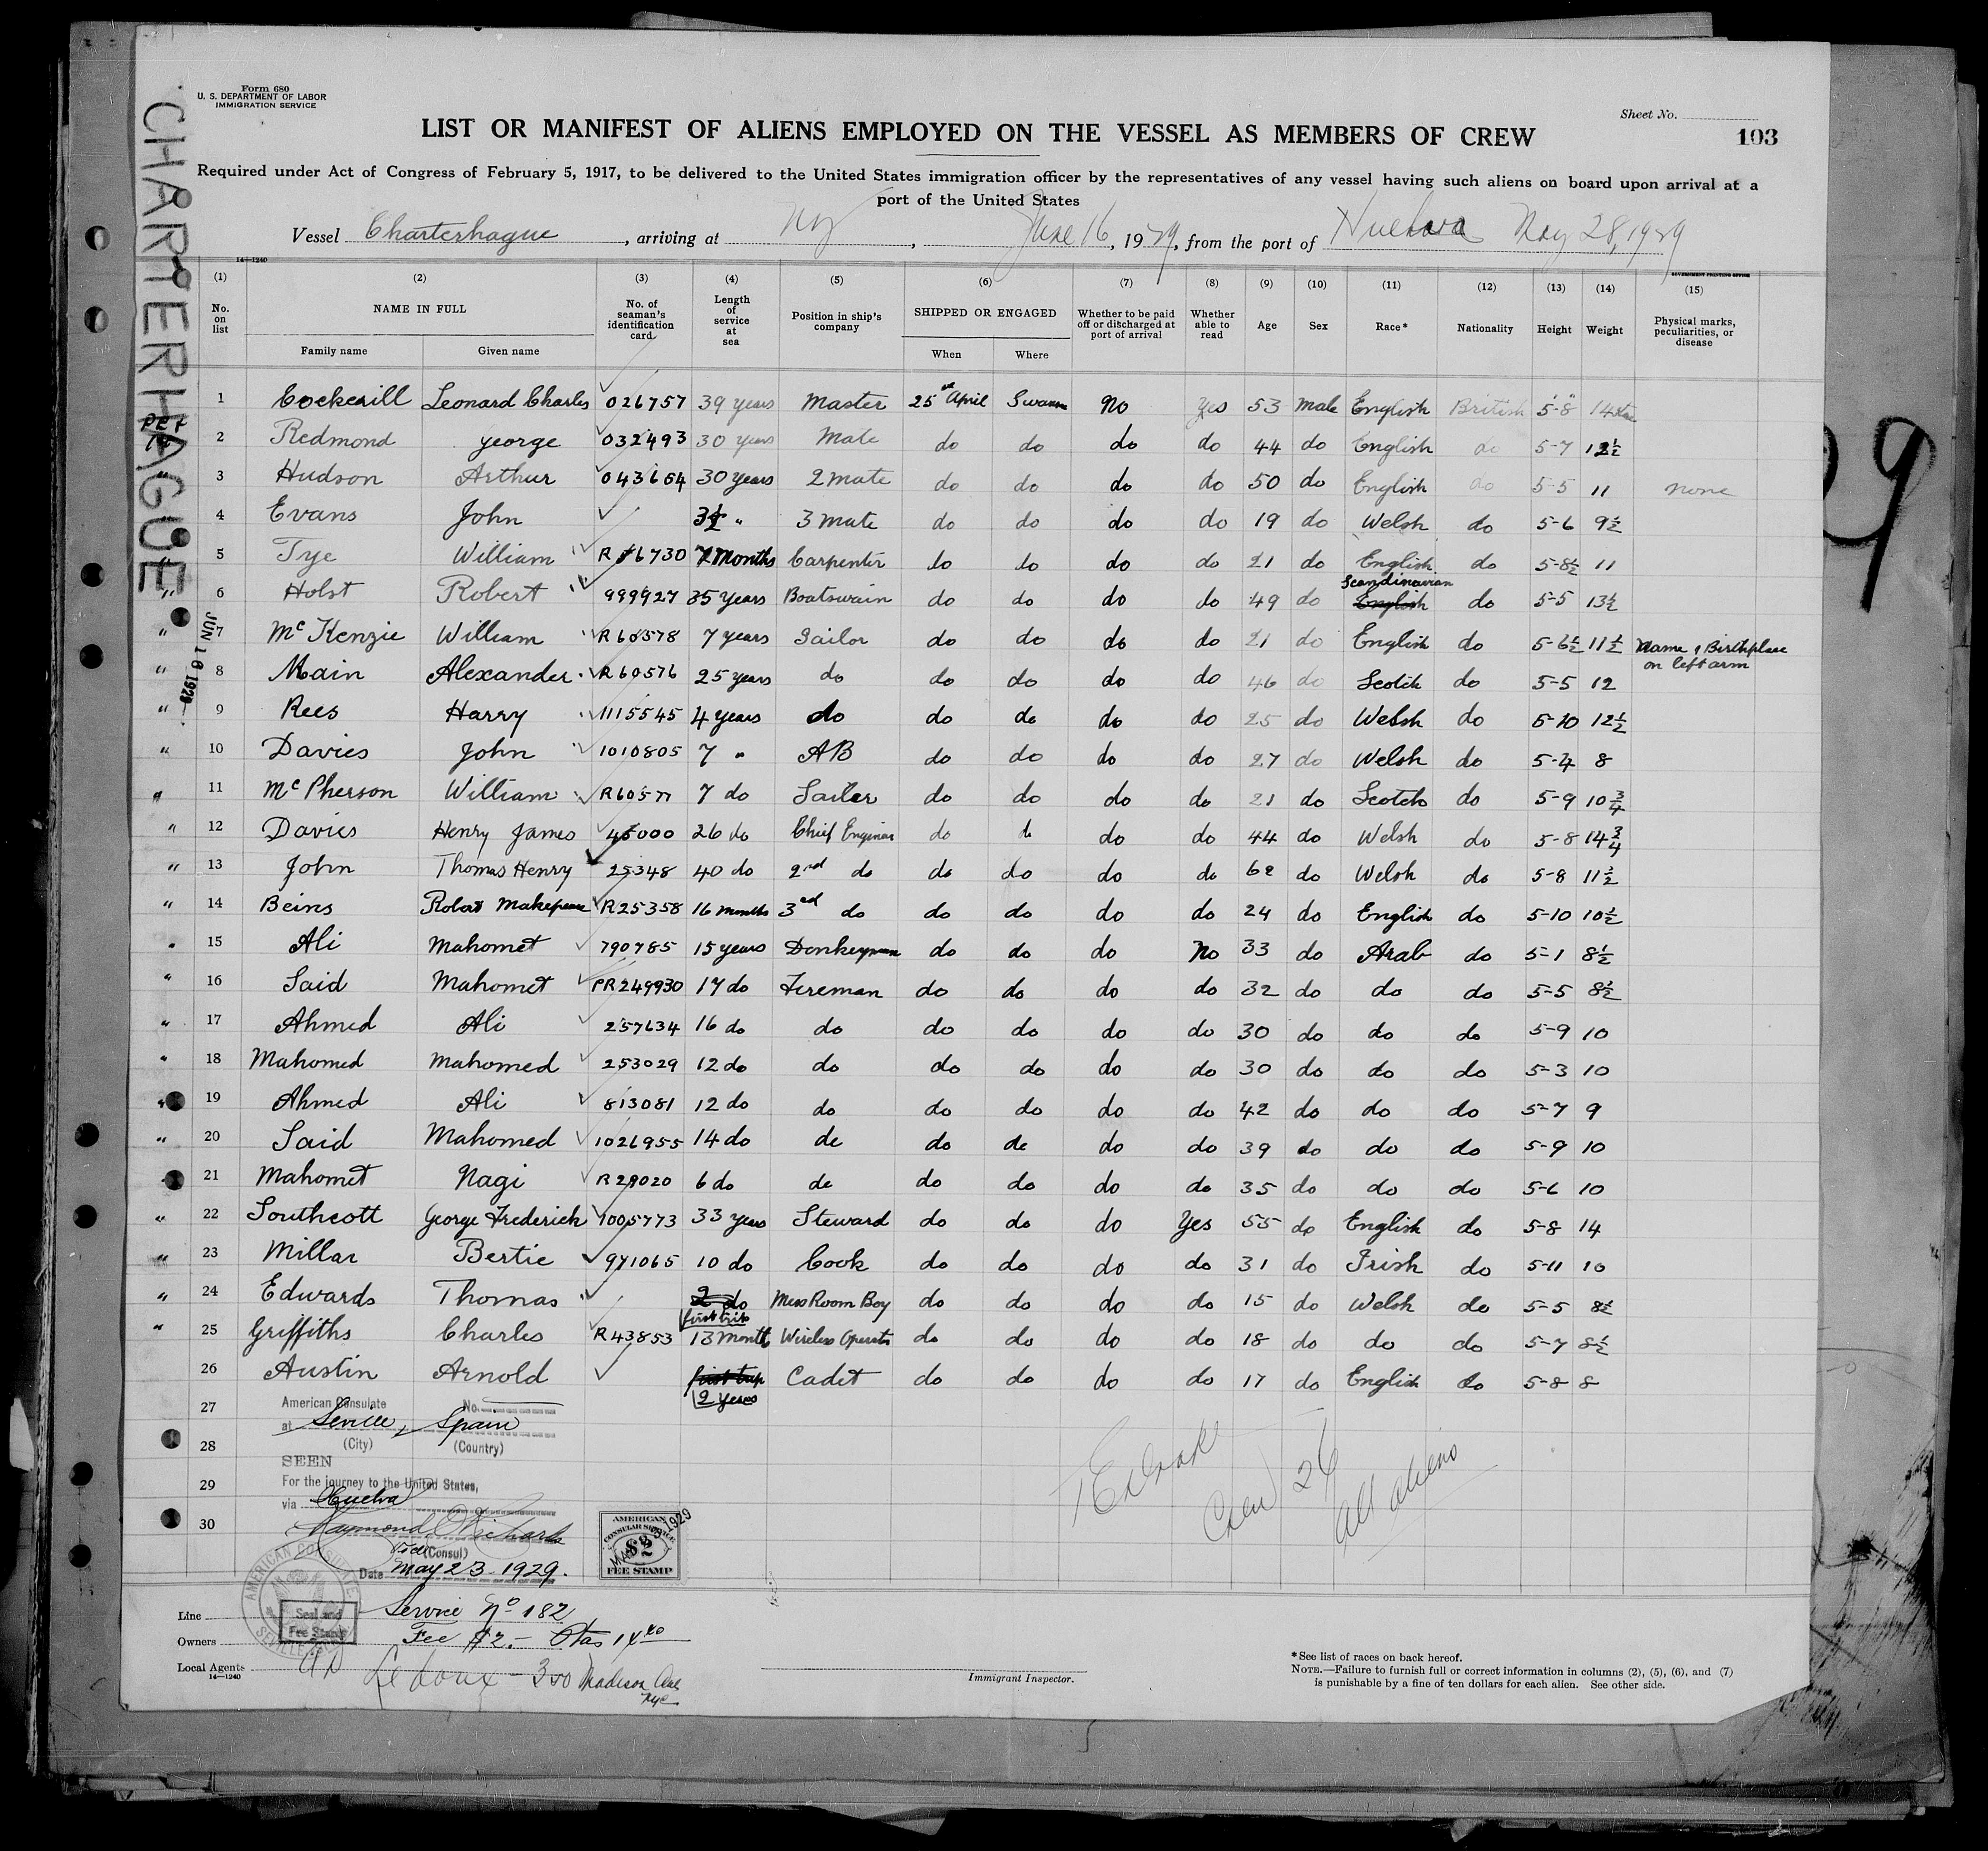 Form 680
U. S. DEPARTMENT OF LABOR
IMMIGRATION SERVICE
Sheet No.
LIST OR MANIFEST OF ALIENS EMPLOYED ON THE VESSEL AS MEMBERS OF CREW
103
Required under Act of Congress of February 5, 1917, to be delivered to the United States immigration officer by the representatives of any vessel having such aliens on board upon arrival at a
port of the United States
Vessel Charterhague, arriving at NY, June 16, 1929, from the port of Huelva May 28, 1929
CHARTERHAGUE
JUN 16 1929
14—1240
GOVERNMENT PRINTING OFFICE
(1) (2) (3) (4) (5) (6) (7) (8) (9) (10) (11) (12) (13) (14) (15)
No. on list NAME IN FULL Family name Given name No. of seaman's identification card Length of service at sea Position in ship's company SHIPPED OR ENGAGED When Where Whether to be paid off or discharged at port of arrival Whether able to read Age Sex Race* Nationality Height Weight Physical marks, peculiarities, or disease
1 Cockerill Leonard Charles 026757 39 years Master 25th April Swansea No Yes 53 Male English British 5'-8" 14
2 Redmond George 032493 30 years Mate do do do do 44 do English do 5-7 12½
3 Hudson Arthur 043664 30 years 2 mate do do do do 50 do English do 5-5 11 none
4 Evans John 3½ " 3 mate do do do do 19 do Welsh do 5-6 9½
5 Tye William 7 Months Carpenter do do do do 21 do English do 5-8½ 11
6 Holst Robert 999927 35 years Boatswain do do do do 49 do Scandinavian English do 5-5 13½
7 McKenzie William R60578 7 years Sailor do do do do 21 do English do 5-6½ 11½ Name & Birthplace
on left arm
8 Main Alexander R60576 25 years do do do do do 46 do Scotch do 5-5 12
9 Rees Harry 1115545 4 years do do do do do 25 do Welsh do 5-10 12½
10 Davies John 1010805 7 " AB do do do do 27 do Welsh do 5-4 8
11 McPherson William R60577 7 do Sailor do do do do 21 do Scotch do 5-9 10¾
12 Davies Henry James 45000 26 do Chief Engineer do do do do 44 do Welsh do 5-8 14¾
13 John Thomas Henry 25348 40 do 2nd do do do do do 62 do Welsh do 5-8 11½
14 Beins Robert Makepeace R25358 16 months 3rd do do do do do 24 do English do 5-10 10½
15 Ali Mahomet 790785 15 years Donkeyman do do do No 33 do Arab do 5-1 8½
16 Said Mahomet PR249930 17 do Fireman do do do do 32 do do do 5-5 8½
17 Ahmed Ali 257634 16 do do do do do do 30 do do do 5-9 10
18 Mahomed Mahomed 253029 12 do do do do do do 30 do do do 5-3 10
19 Ahmed Ali 813081 12 do do do do do do 42 do do do 5-7 9
20 Said Mahomed 1026955 14 do do do do do do 39 do do do 5-9 10
21 Mahomet Nagi R29020 6 do do do do do do 35 do do do 5-6 10
22 Southcott George Frederick 1005773 33 years Steward do do do Yes 55 do English do 5-8 14
23 Millar Bertie 971065 10 do Cook do do do do 31 do Irish do 5-11 10
24 Edwards Thomas 2 do first trip Mess Room Boy do do do do 15 do Welsh do 5-5 8½
25 Griffiths Charles R43853 13 month Wireless Operator do do do do 18 do do do 5-7 8½
26 Austin Arnold first trip 2 years Cadet do do do do 17 do English do 5-8 8
27
28
29
30
American Consulate No.
at Seville, Spain
(City) (Country)
SEEN
For the journey to the United States,
via Huelva
Raymond O Richards
Vice (Consul)
Date May 23 1929.
AMERICAN
CONSULAR SERVICE
$2
FEE STAMP
Crew 26
all aliens
AMERICAN CONSULATE
SEVILLE
Seal and
Fee Stamp
Line
Service No 182
Owners
Fee $2.-
Local Agents
Ledoux - 300 Madison Ave
NYC
14—1240
Immigrant Inspector.
*See list of races on back hereof.
NOTE.—Failure to furnish full or correct information in columns (2), (5), (6), and (7)
is punishable by a fine of ten dollars for each alien. See other side.